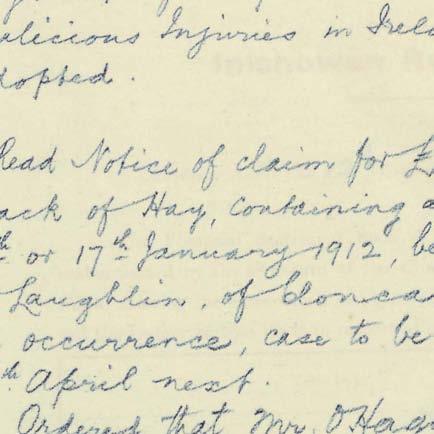 alicious Injuries in Irel
dopted.
Read Notice of claim for £
ack of Hay, containing a
th or 17th January 1912, be
Laughlin, of Clonca
occurrence, case to be
th April next.
Ordered that Mr. O'Hag